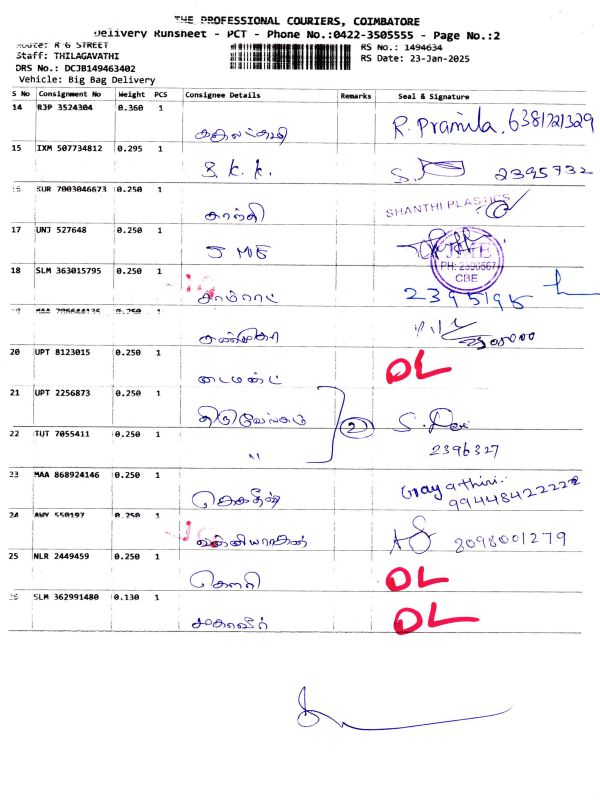 THE PROFESSIONAL COURIERS, COIMBATORE
Delivery Runsheet - PCT - Phone No.:0422-3505555 - Page No.:2
Route: R G STREET
Staff: THILAGAVATHI
DRS No.: DCJB149463402
Vehicle: Big Bag Delivery
RS No.: 1494634
RS Date: 23-Jan-2025
S No Consignment No Weight PCS Consignee Details Remarks Seal & Signature
14 RJP 3524304 0.360 1
R. Pramila, 6381721329
15 IXM 507734812 0.295 1
S. K. K. 2395732
16 SUR 7003046673 0.250 1
சாந்தி SHANTHI PLASTICS
17 UNJ 527648 0.250 1
JME
JME
PH: 2390567
CBE
18 SLM 363015795 0.250 1
சாம்ராட் 2395195
19 MAA 706644135 0.250 1
சண்முகா
20 UPT 8123015 0.250 1
டைமண்ட் DL
21 UPT 2256873 0.250 1
திருவேங்கடம் 2 S. Devi
22 TUT 7055411 0.250 1
" 2396327
23 MAA 868924146 0.250 1
Gayathiri.
99448422222
24 AMY 550197 0.250 1
வன்னியராஜன் 8098001279
25 NLR 2449459 0.250 1
கௌரி DL
26 SLM 362991480 0.130 1
மகாவீர் DL